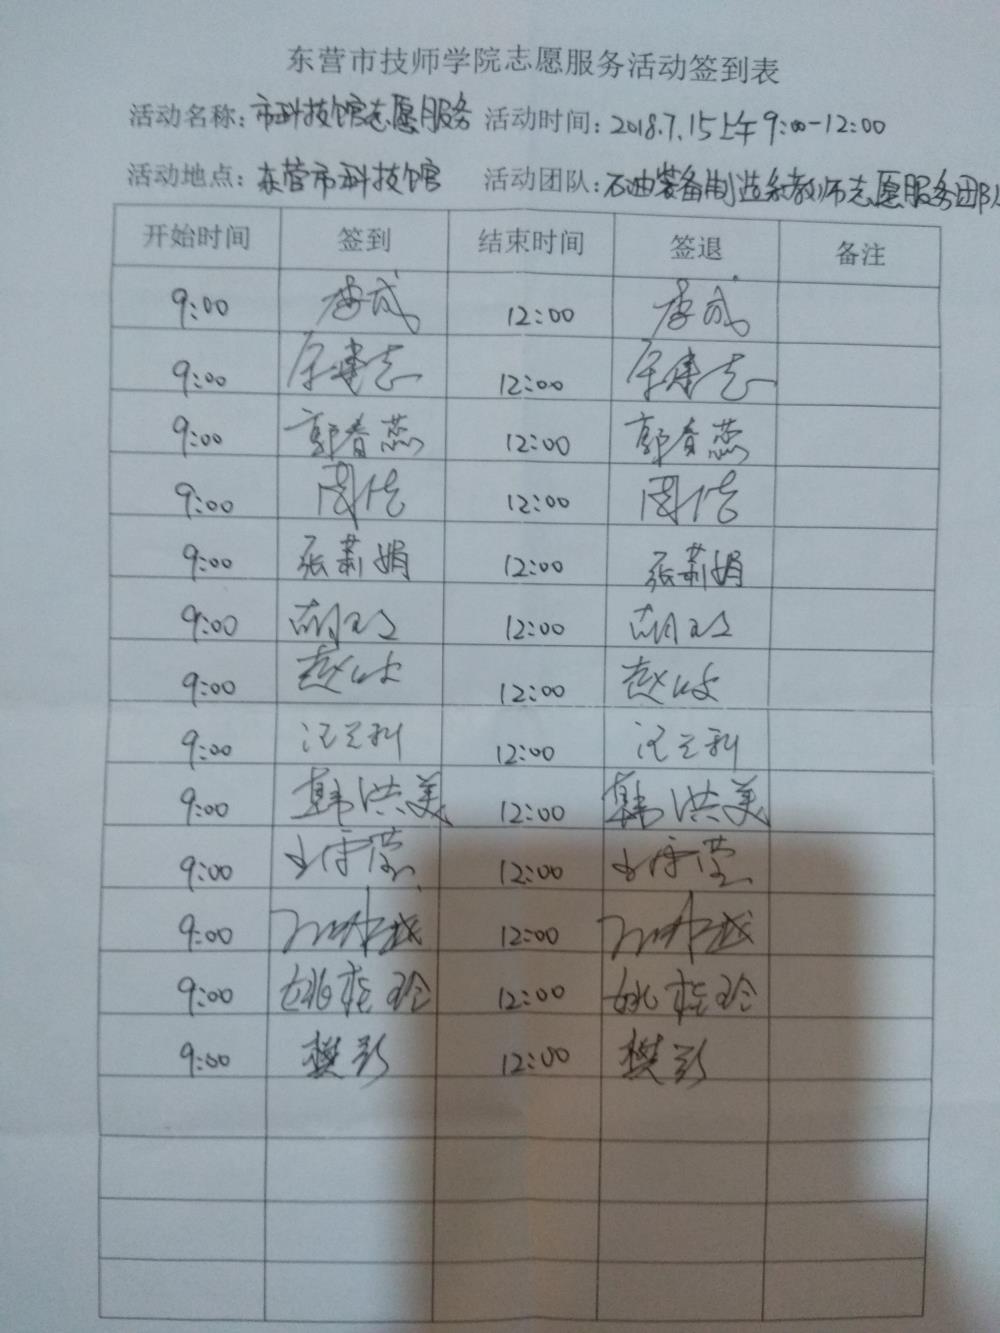 东营市技师学院志愿服务活动签到表
活动名称：市科技馆志愿服务 活动时间：2018.7.15上午9:00-12:00
活动地点：东营市科技馆 活动团队：石油装备制造系教师志愿服务团队
开始时间 签到 结束时间 签退 备注
9:00 李成 12:00 李成
9:00 12:00
9:00 郭春蕊 12:00 郭春蕊
9:00 周信 12:00 周信
9:00 张莉娟 12:00 张莉娟
9:00 12:00
9:00 12:00
9:00 汪立利 12:00 汪立利
9:00 韩洪美 12:00 韩洪美
9:00 12:00
9:00 12:00
9:00 姚桂玲 12:00 姚桂玲
9:00 樊彩 12:00 樊彩